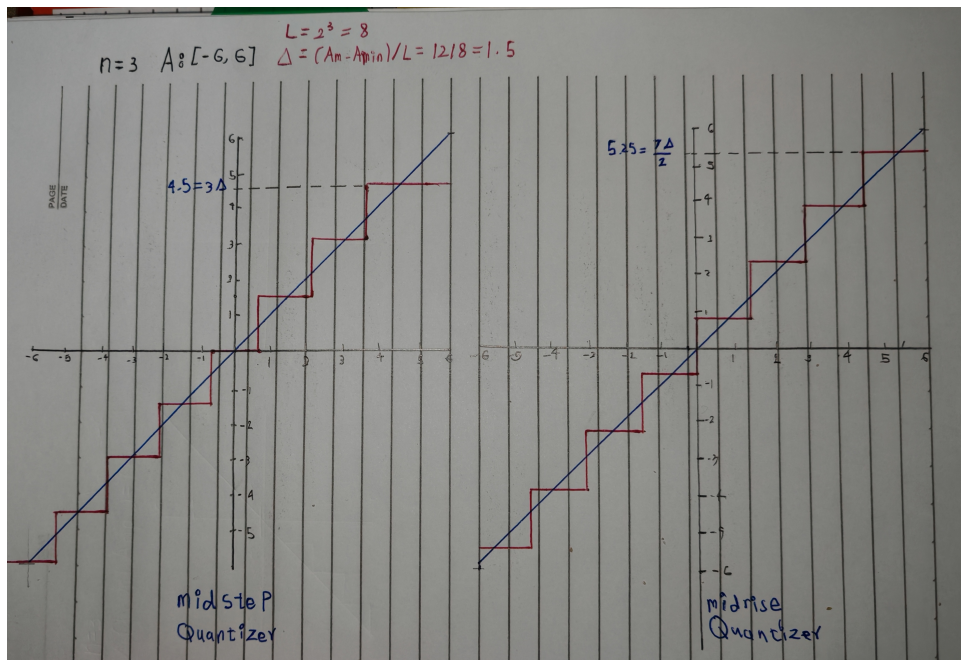 L = 2³ = 8
n=3 A: [-6, 6] Δ = (Am-Amin)/L = 12/8 = 1.5
PAGE
DATE
6
5
4.5=3Δ
4
3
2
1
-6 -5 -4 -3 -2 -1 1 2 3 4 5 6
-1
-2
-3
-4
-5
midsteP
Quantizer
6
5.25= 7Δ/2
5
4
3
2
1
-6 -5 -4 -2 -1 1 2 3 4 5 6
-1
-2
-3
-4
-5
-6
midrise
Quantizer